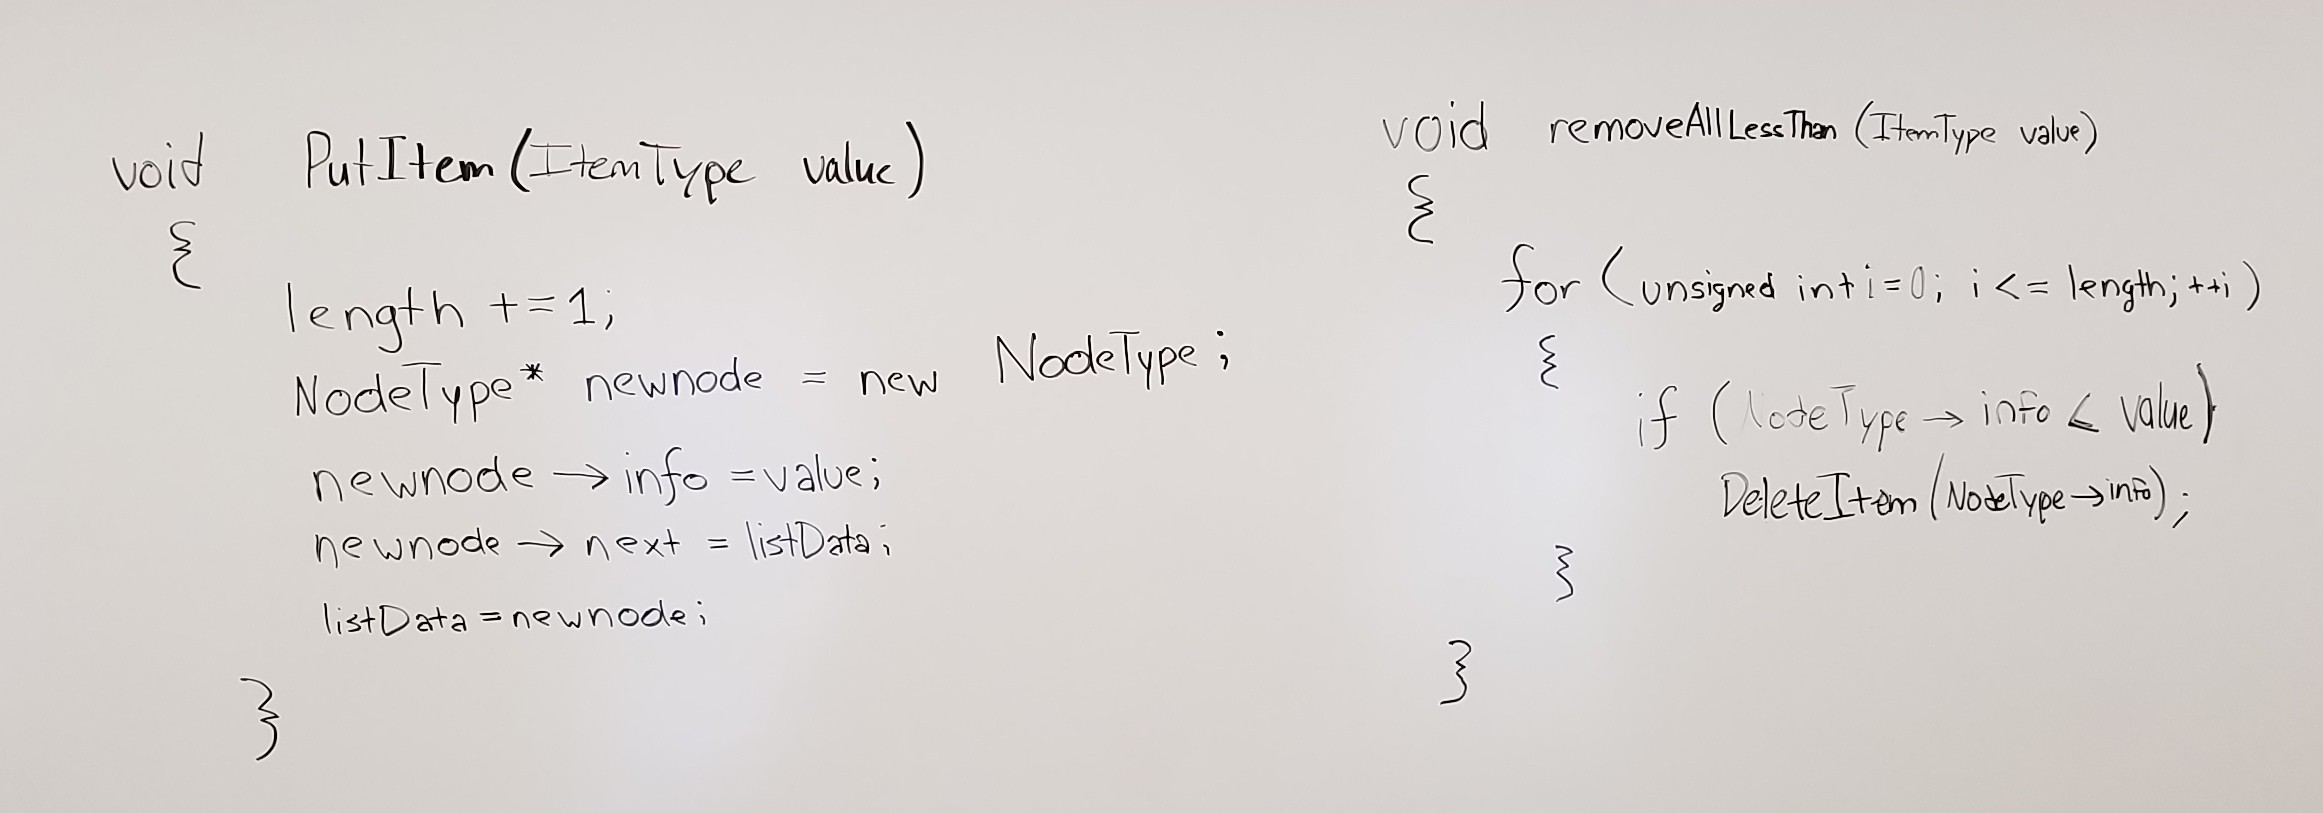 void PutItem(ItemType value)
{
length +=1;
NodeType* newnode = new NodeType;
newnode → info = value;
newnode → next = listData;
listData = newnode;
}
void removeAllLessThan (ItemType value)
{
for (unsigned int i=0; i <= length; ++i)
{
if (NodeType → info < value)
DeleteItem(NodeType → info);
}
}